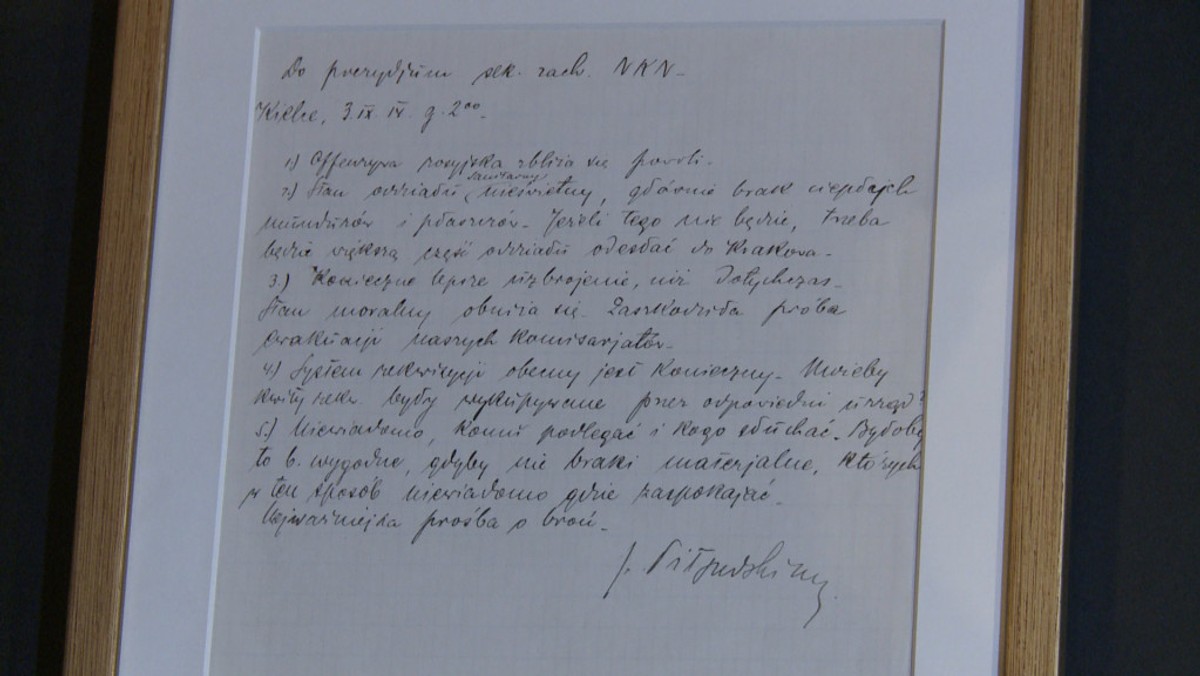 Do prezydjum sek. zach. NKN.
Kielce, 3.IX. g. 2⁰⁰.
1.) Offenzywa rosyjska zbliża się powoli.
2.) Stan oddziału sanitarny nieświetny, głównie brak ciepłych
mundurów i płaszczów. Jeżeli tego nie będzie, trzeba
będzie większą część oddziału odesłać do Krakowa.
3.) Konieczne lepsze uzbrojenie, niż dotychczas.
Stan moralny obniża się. Zaszkodziła próba
ewakuacji naszych komisarjatów.
4.) System rekwizycji obecny jest konieczny.
kwity rekw. były wykupywane przez odpowiedni urząd?
5.) Niewiadomo, komu podlegać i kogo słuchać. Byłoby
to b. wygodne, gdyby nie braki materjalne, których
w ten sposób niewiadomo gdzie zaspokajać.
Najważniejsza prośba o broń.
J. Piłsudski